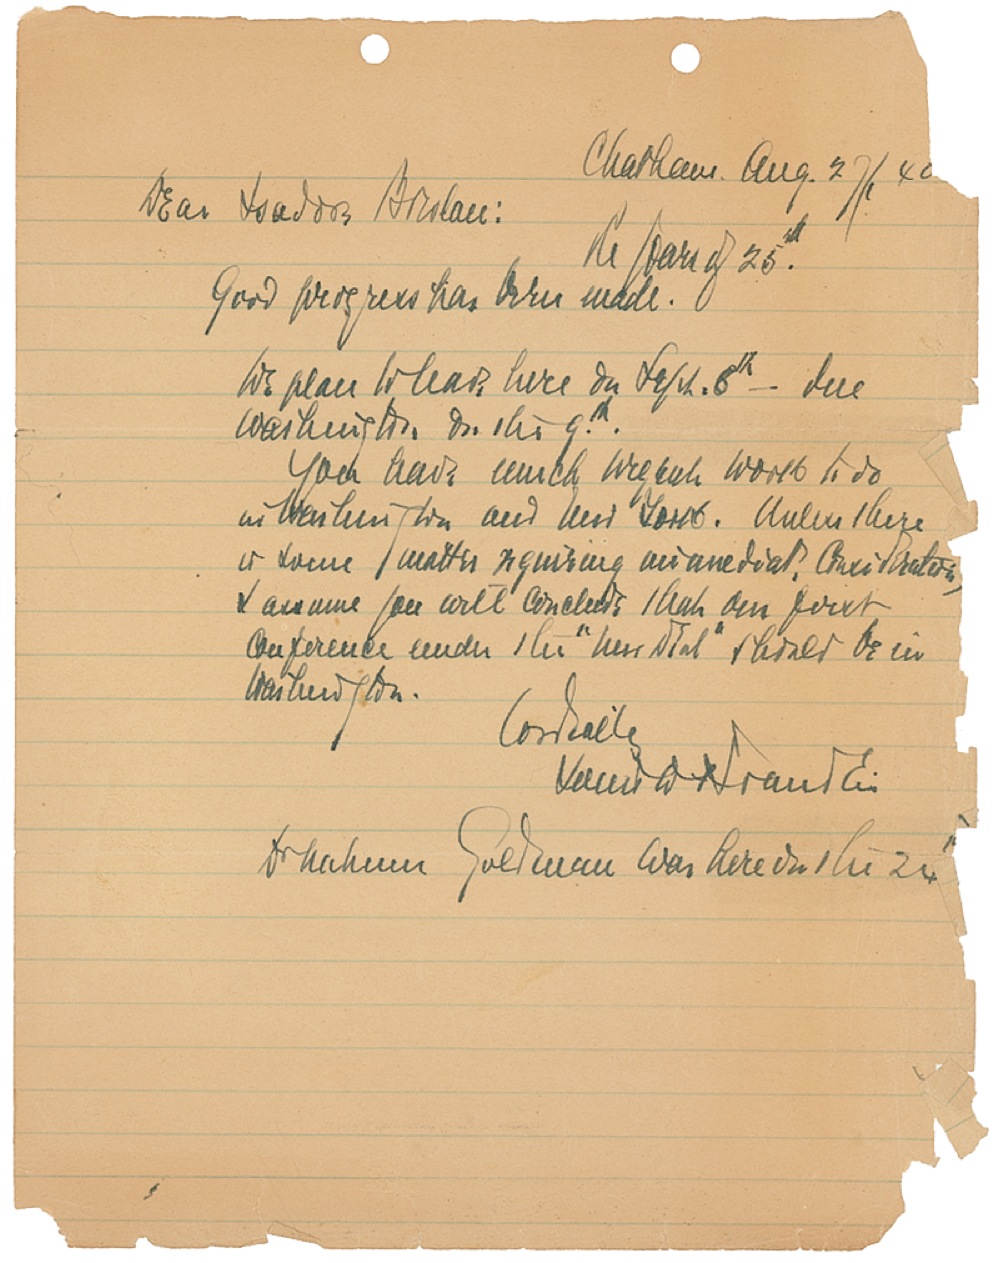 Chatham. Aug. 27/40
Dear Isadore Breslau:
Re yours of 25th.
Good progress has been made.
We plan to leave here on Sept. 8th — due
Washington on the 9th.
You have much urgent work to do
in Washington and New York. Unless there
is some matter requiring immediate consideration,
I assume you will conclude that our first
conference under the "New Deal" should be in
Washington.
Cordially
Louis D Brandeis
Dr Nahum Goldman was here on the 24th